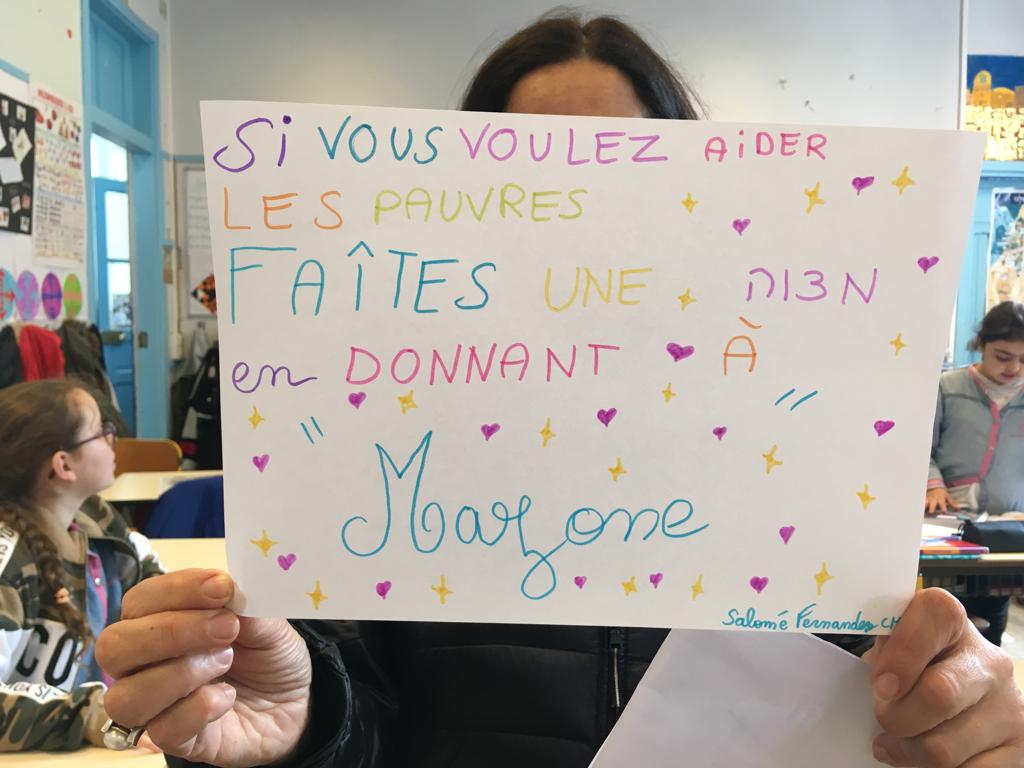 Si VOUS VOULEZ AiDER
LES PAUVRES
FAÎTES UNE מצוה
en DONNANT À
"Mazone"
Salomé Fernandez